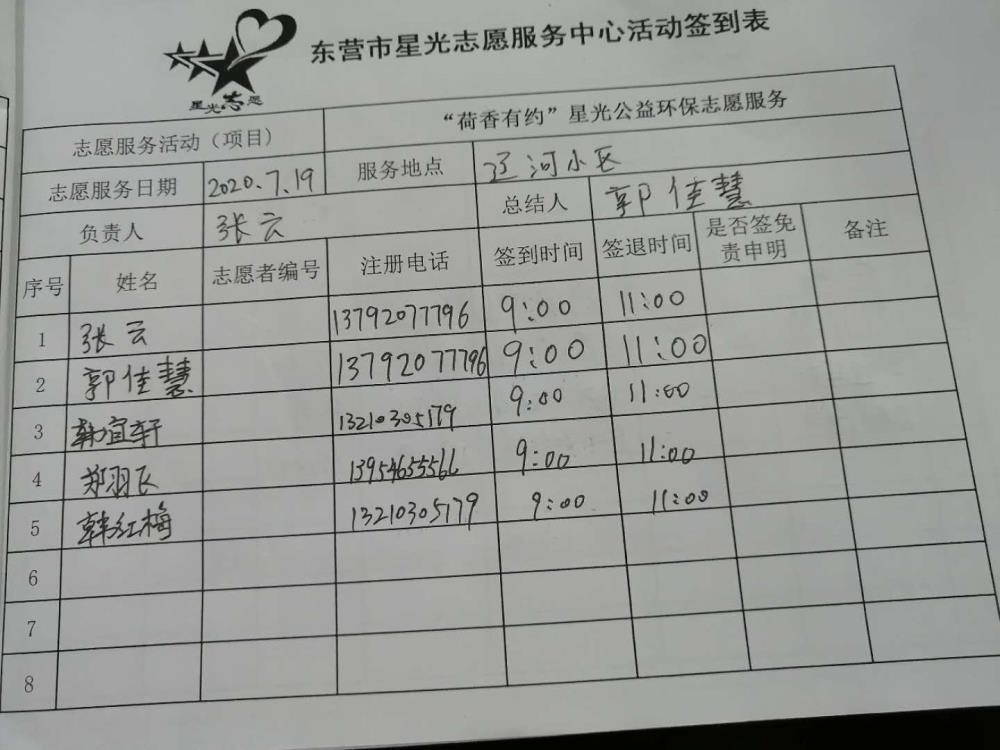 星光志愿
东营市星光志愿服务中心活动签到表
志愿服务活动（项目） “荷香有约”星光公益环保志愿服务
志愿服务日期 2020.7.19 服务地点 辽河小区
负责人 张云 总结人 郭佳慧
序号 姓名 志愿者编号 注册电话 签到时间 签退时间 是否签免责申明 备注
1 张云 13792077796 9:00 11:00
2 郭佳慧 13792077796 9:00 11:00
3 韩宜轩 13210305179 9:00 11:00
4 郑羽飞 13954655566 9:00 11:00
5 韩红梅 13210305179 9:00 11:00
6
7
8